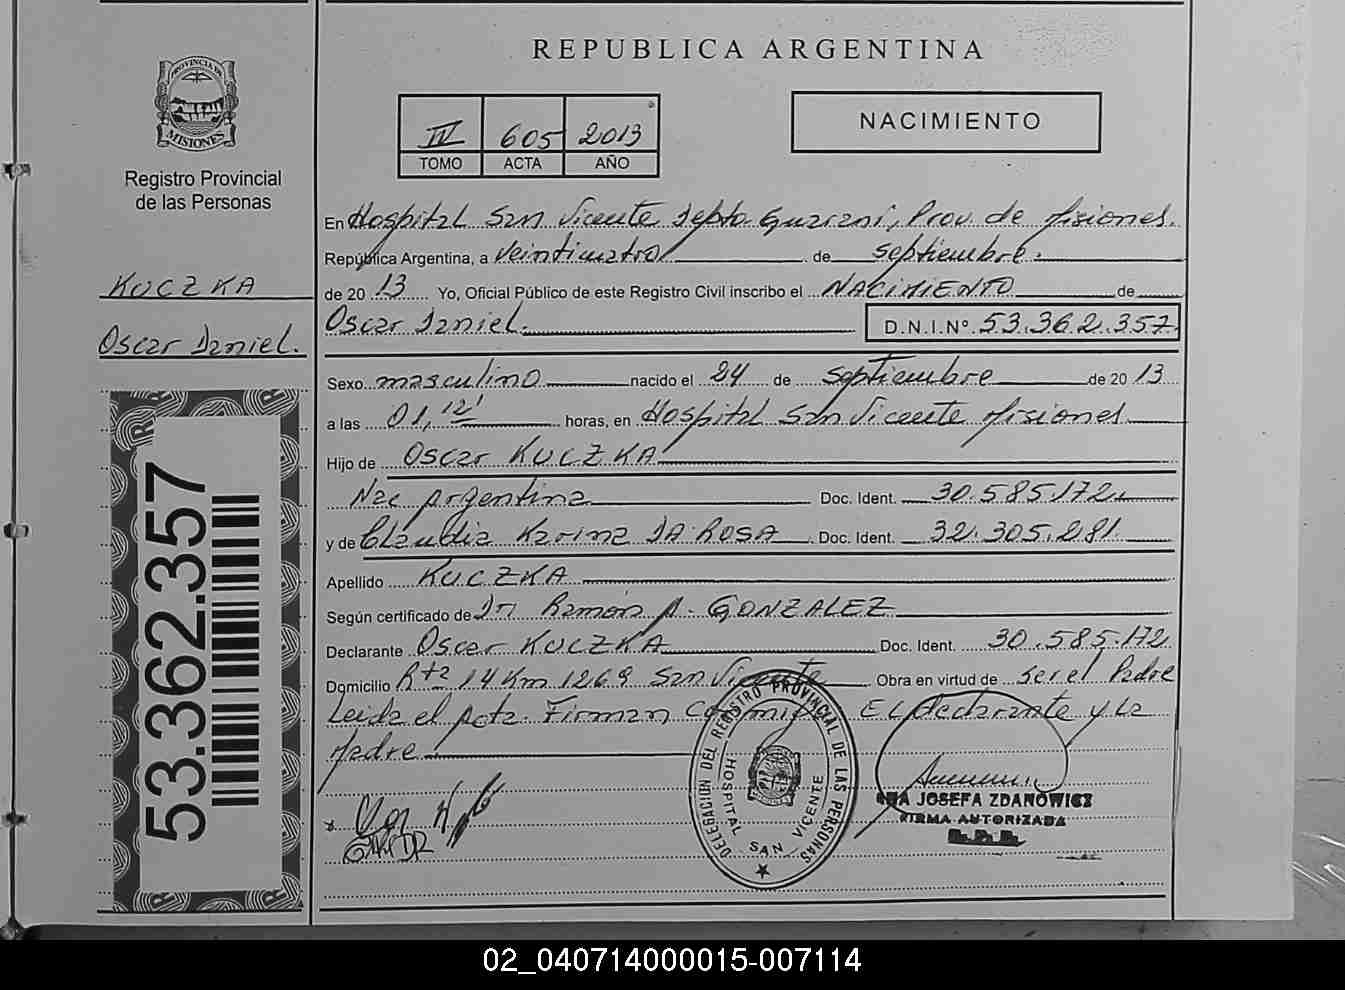 REPUBLICA ARGENTINA
PROVINCIA DE
MISIONES
Registro Provincial
de las Personas
IV 605 2013
TOMO ACTA AÑO
NACIMIENTO
KUCZKA
Oscar Daniel.
53.362.357
En Hospital San Vicente Depto Guarani, Prov. de Misiones.
República Argentina, a veinticuatro de septiembre.
de 20 13 Yo, Oficial Público de este Registro Civil inscribo el NACIMIENTO de
Oscar Daniel. D.N.I.Nº 53.362.357
Sexo masculino nacido el 24 de septiembre de 20 13
a las 01,12' horas, en Hospital San Vicente Misiones
Hijo de Oscar KUCZKA
Nac Argentina Doc. Ident. 30.585.172.
y de Claudia Karina DA ROSA Doc. Ident. 32.305.281.
Apellido KUCZKA
Según certificado de Dr. Ramón A. GONZALEZ
Declarante Oscar KUCZKA Doc. Ident. 30.585.172
Domicilio Rta 14 Km 1269 San Vicente Obra en virtud de Ser el Padre
Leida el Acta. Firman Conmigo El declarante y La
Madre
DELEGACION DEL REGISTRO PROVINCIAL DE LAS PERSONAS
HOSPITAL SAN VICENTE
ANA JOSEFA ZDANOWICZ
FIRMA AUTORIZADA
R.P.P.
02_040714000015-007114